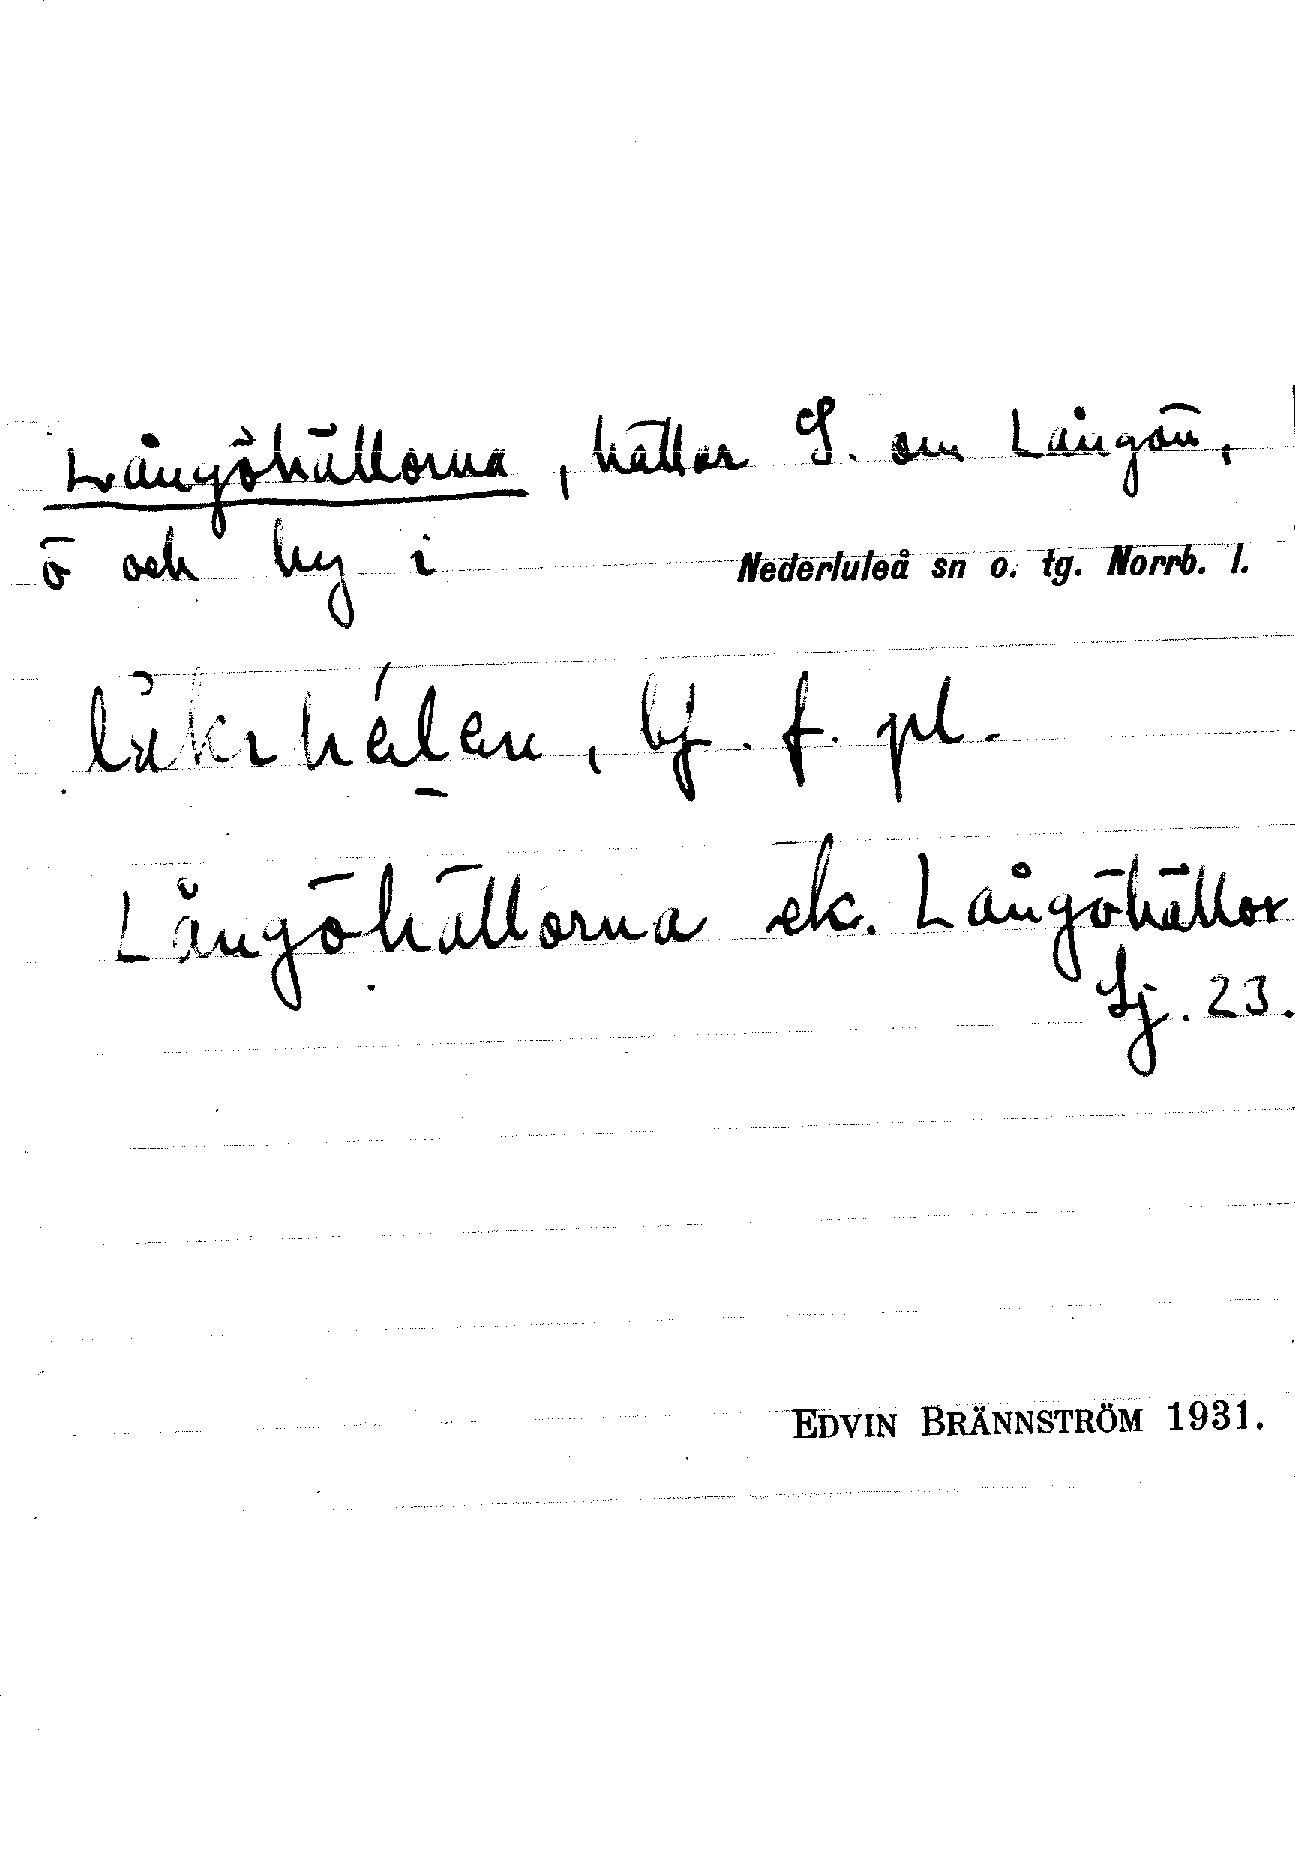 Långöhällorna, hällar S. om Långön,
ö och by i Nederluleå sn o. tg. Norrb. l.
bf. f. pl.
Långöhällorna ek. Långöhällor
Sj. 23.
EDVIN BRÄNNSTRÖM 1931.